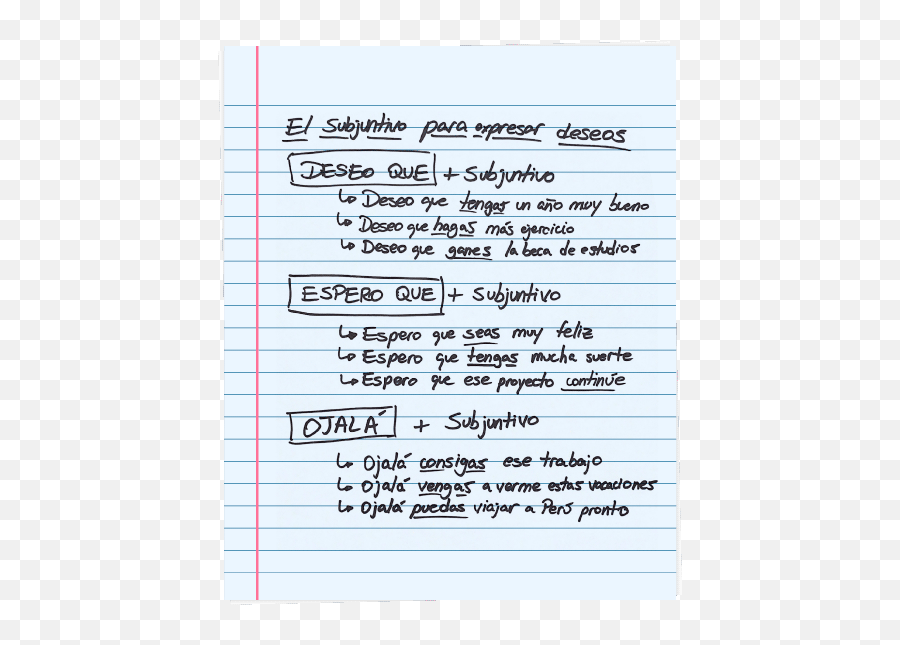 El subjuntivo para expresar deseos
DESEO QUE + Subjuntivo
↳ Deseo que tengas un año muy bueno
↳ Deseo que hagas más ejercicio
↳ Deseo que ganes la beca de estudios
ESPERO QUE + Subjuntivo
↳ Espero que seas muy feliz
↳ Espero que tengas mucha suerte
↳ Espero que ese proyecto continúe
OJALÁ + Subjuntivo
↳ Ojalá consigas ese trabajo
↳ Ojalá vengas a verme estas vacaciones
↳ Ojalá puedas viajar a Perú pronto